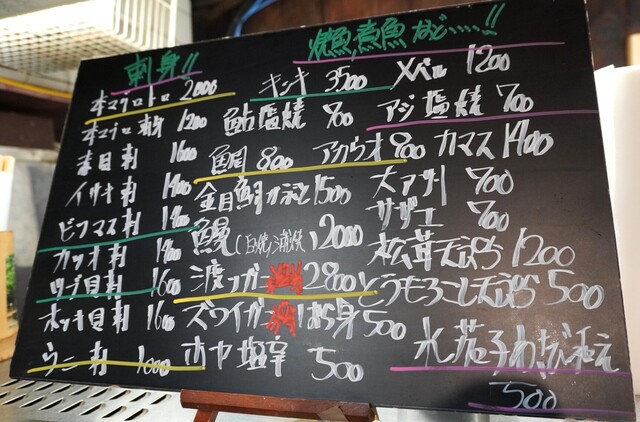 刺身!!
本マグロトロ 2000
本マグロ赤身 1200
赤貝刺 1600
イサキ刺 1400
ビワマス刺 1400
カツオ刺 1400
ツブ貝刺 1600
ホッキ貝刺 1600
ウニ刺 1000
焼魚,煮魚など……!!
キンキ 3500
鮎塩焼 800
鯛 800 アカウオ 800
金目鯛カブト 1500
鰻(白焼)(蒲焼) 2000
渡リガニ 2800
ズワイガニ ほぐし身 500
ホヤ塩辛 500
メバル 1200
アジ塩焼 700
カマス 1400
大アサリ 700
サザエ 700
松茸天ぷら 1200
とうもろこし天ぷら 500
水茄子わさび和え
500